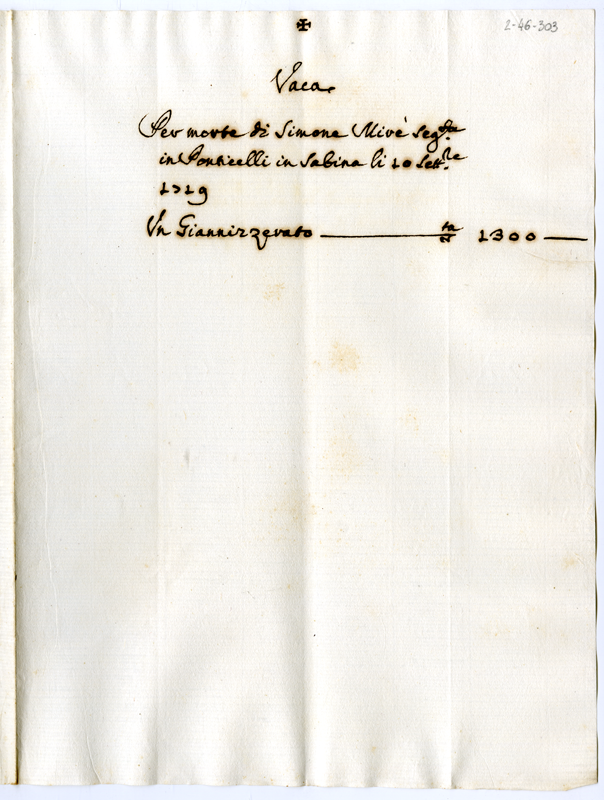 ✠
2-46-303
Vaca
Per morte di Simone Mirè seg.ta
in Ponticelli in Sabina li 10 Sett.re
1719
Un Giannizzerato 1300